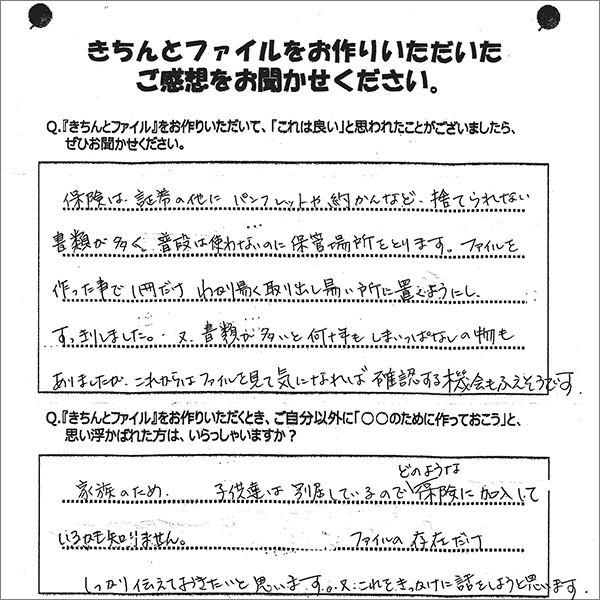 きちんとファイルをお作りいただいた
ご感想をお聞かせください。
Q.『きちんとファイル』をお作りいただいて、「これは良い」と思われたことがございましたら、
ぜひお聞かせください。
保険は、証券の他に パンフレットや約かんなど、捨てられない
書類が多く、普段は使わないのに保管場所をとります。ファイルを
作った事で1冊だけ わかり易く取り出し易い所に置くようにし、
すっきりしました。又、書類が多いと何十年も しまいっぱなしの物も
ありましたが、これからはファイルを見て気になれば 確認する機会もふえそうです。
Q.『きちんとファイル』をお作りいただくとき、ご自分以外に「○○のために作っておこう」と、
思い浮かばれた方は、いらっしゃいますか?
家族のため、 子供達は別居しているのでどのような保険に加入して
いるかも知りません。 ファイルの存在だけ
しっかり伝えておきたいと思います。又、これをきっかけに話をしようと思います。